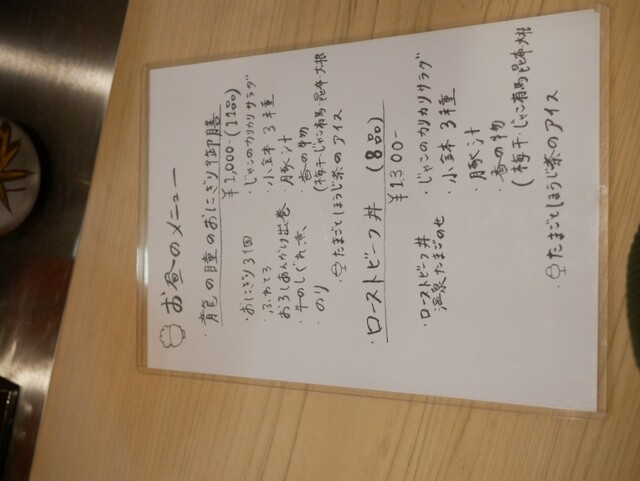 お昼のメニュー
・龍の瞳のおにぎり御膳
¥2,000-(11品)
・おにぎり3個
・ふわとろ
おろしあんかけ出巻
・牛のしぐれ煮
・のり
・じゃこのカリカリサラダ
・小鉢3種
・豚汁
・香の物
(梅干・じゃこ有馬・昆布大根
・たまごとほうじ茶のアイス
・ローストビーフ丼 (8品)
¥1300-
・ローストビーフ丼
温泉たまごのせ
・じゃこのカリカリサラダ
・小鉢3種
・豚汁
・香の物
(梅干・じゃこ有馬昆布大根
・たまごとほうじ茶のアイス